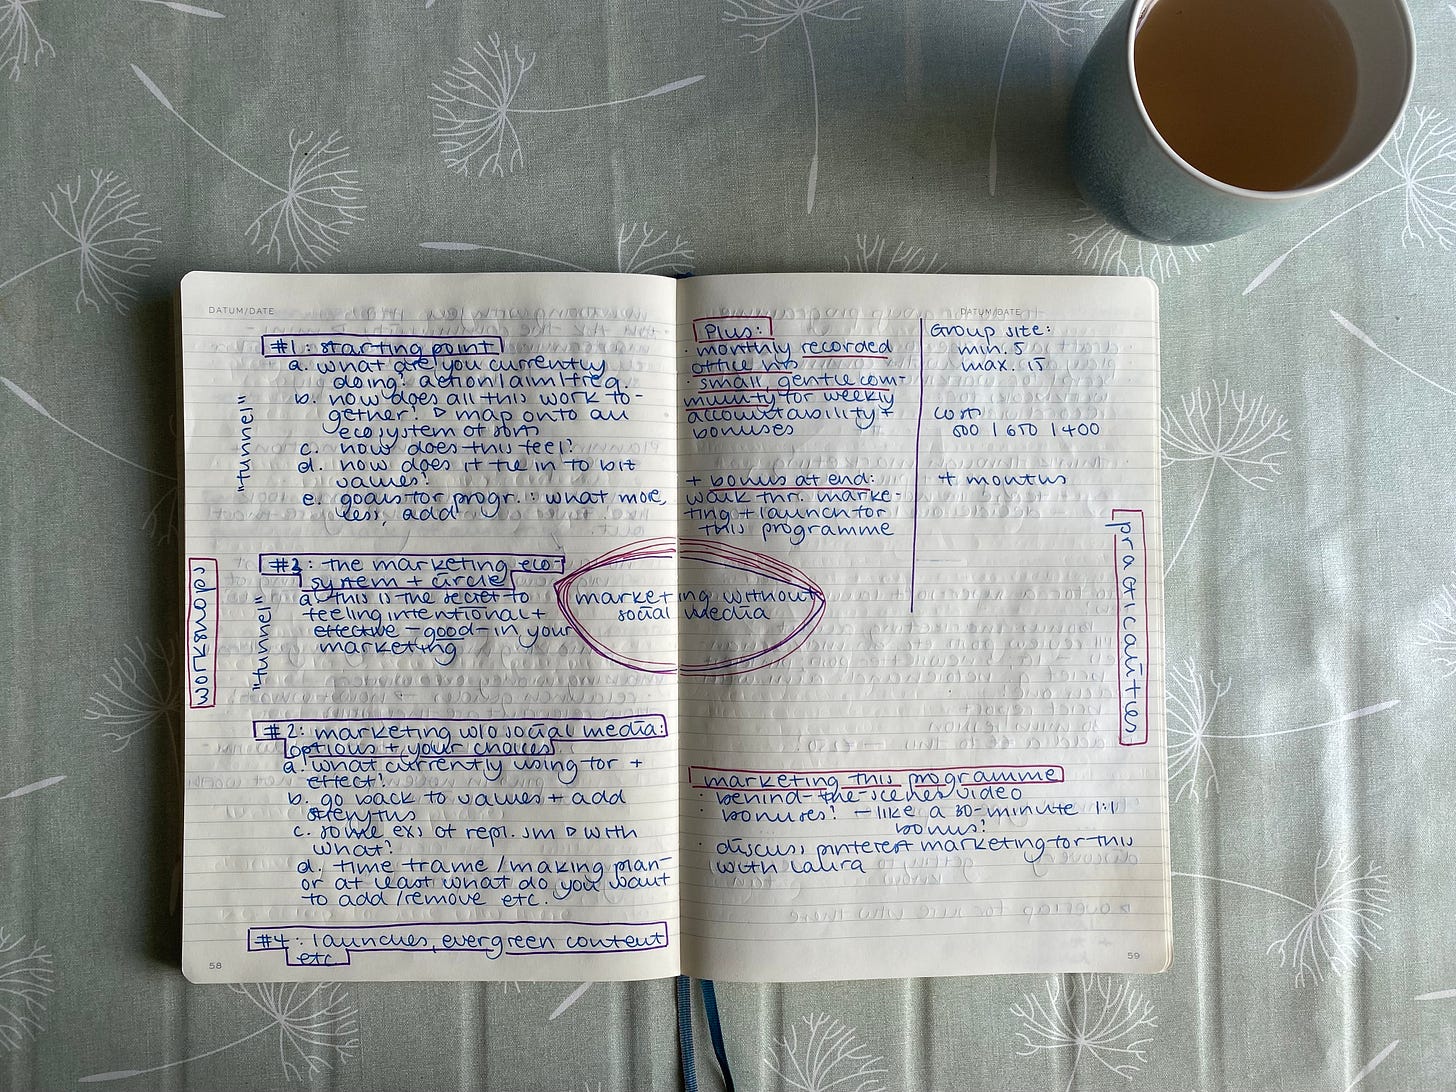 DATUM/DATE
#1: starting point
a. what are you currently
doing? action/aim/freq.
b. how does all this work to-
gether? ▷ map onto an
ecosystem of sorts
c. how does this feel?
d. how does it tie in to
values?
e. goals for progr.: what more,
less, add
"tunnel"
#3: the marketing eco-
system + circle
a. this is the secret to
feeling intentional +
effective – good – in your
marketing
"tunnel"
workshops
#2: marketing w/o social media:
options + your choices
a. what currently using for +
effect?
b. go back to values + add
strengths
c. some exs of repl. sm ▷ with
what?
d. time frame / making plan –
or at least what do you want
to add / remove etc.
#4: launches, evergreen content
etc.
58
marketing without
social media
DATUM/DATE
Plus:
· monthly recorded
office hrs
· small, gentle com-
munity for weekly
accountability +
bonuses
+ bonus at end:
walk thr. marke-
ting + launch for
this programme
Group size:
min. 5
max. 15
cost
500 / 650 / 400
4 months
practicalities
marketing this programme
· behind-the-scenes video
bonuses? – like a 30-minute 1:1
bonus?
· discuss pinterest marketing for this
with laura
59